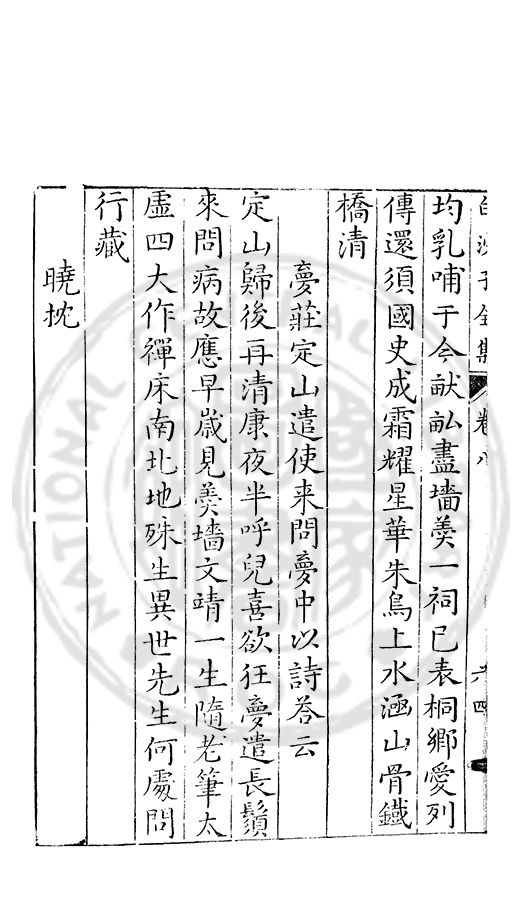 白沙子全集 卷八 六四
均乳哺于今畎畝盡墻羮一祠已表桐鄉愛列
傳還須國史成霜耀星華朱鳥上水涵山骨鐵
橋清
夣莊定山遣使来問夣中以詩荅云
定山歸後再清康夜半呼兒喜欲狂夣遣長鬚
來問病故應早歳見羮墻文靖一生隨老筆太
虛四大作禪床南北地殊生異世先生何處問
行藏
曉枕
NATIONAL